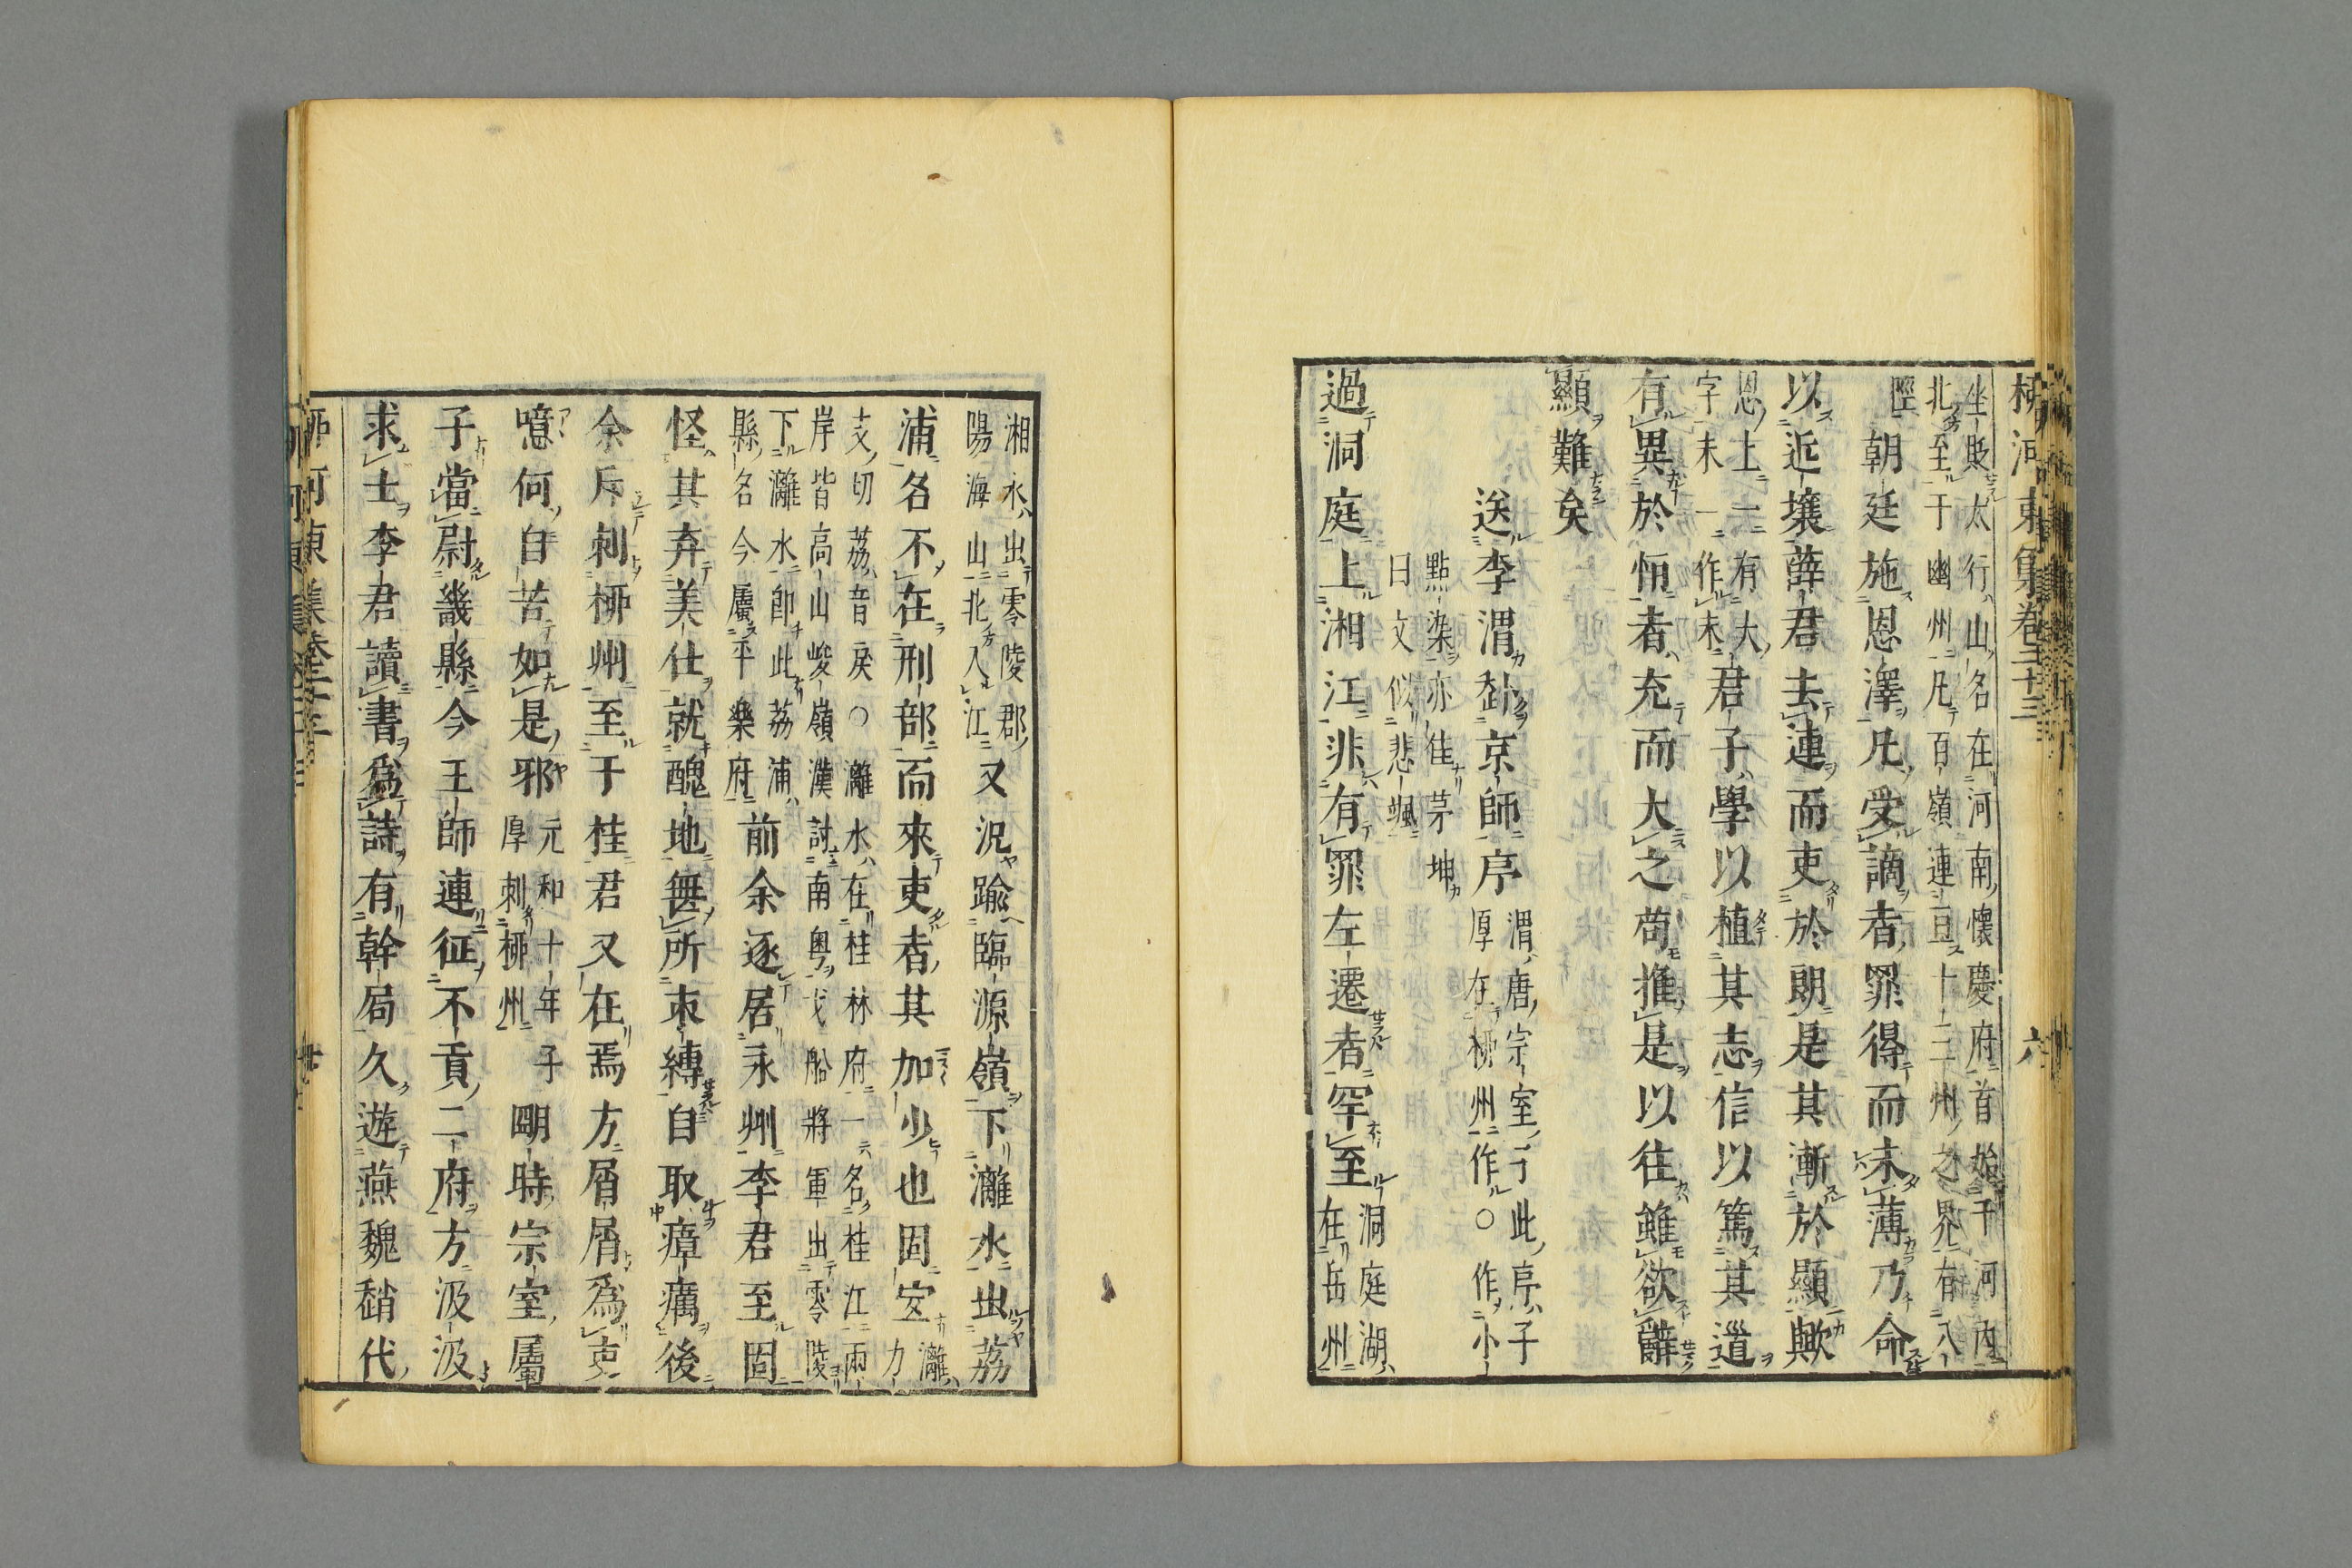 柳河東集卷二十三 六
坐貶太行山名在河南懷慶府首始于河內
北至于幽州凡百嶺連亘十二州之界有八
陘
朝廷施恩澤凡受謫者罪得而未薄乃命
以近壤薛君去連而吏於朗是其漸於顯歟
恩上一有大
字未一作末
君子學以植其志信以篤其道
有異於恒者充而大之苟推是以往雖欲辭
顯難矣
送李渭赴京師序
渭唐宗室子此序子
厚在柳州作○作小
點染亦佳茅坤
曰文似悲颯
過洞庭上湘江非有罪左遷者罕至
洞庭湖
在岳州
湘水出零陵郡
陽海山北入江
又況踰臨源嶺下灕水出荔
浦名不在刑部而來吏者其加少也固宜
灕
力
支切荔音戾○灕水在桂林府一名桂江兩
岸皆高山峻嶺漢討南粵戈船將軍出零陵
下灕水即此荔浦
縣名今屬平樂府
前余逐居永州李君至固
怪其弃美仕就醜地無所束縛自取瘴癘後
余斥刺柳州至于桂君又在焉方屑屑為吏
噫何自苦如是邪
元和十年子
厚刺柳州
明時宗室屬
子當尉畿縣今王師連征不貢二府方汲汲
求士李君讀書為詩有幹局久遊燕魏趙代
柳河東集卷二十三